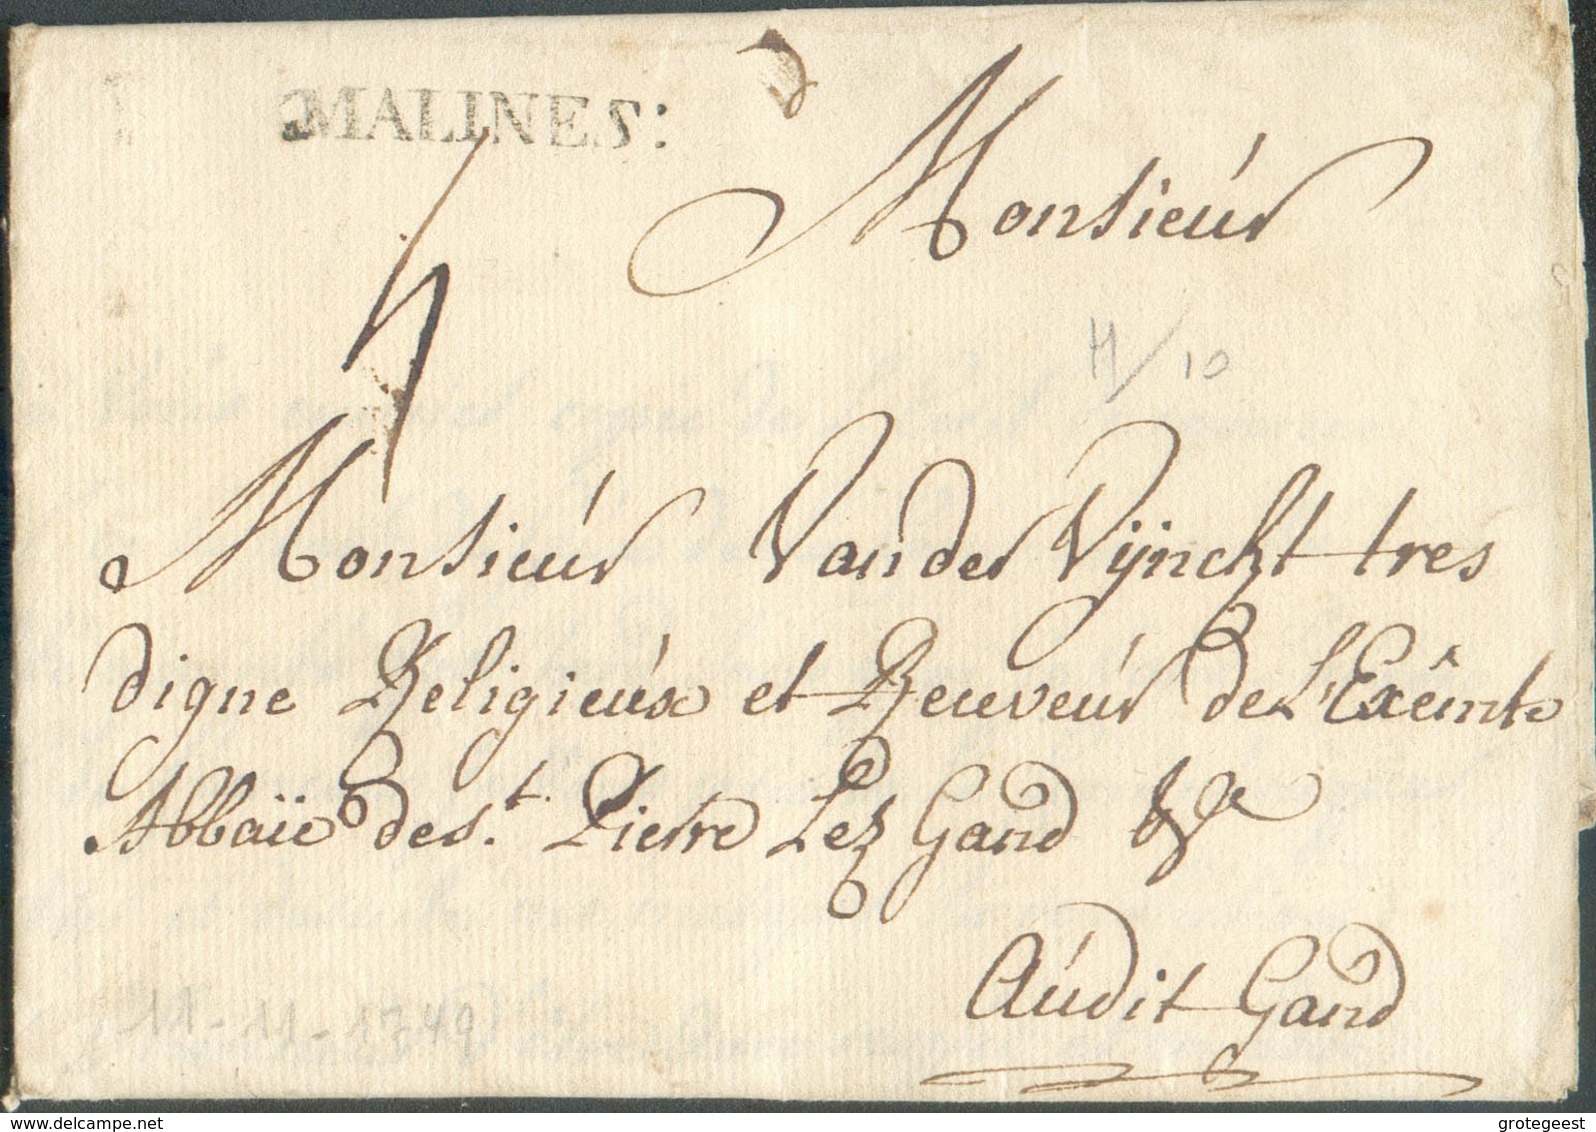 MALINES:
Monsieur
H/10
Monsieur Vander Vÿnckt tres
digne Religieux et Receveur de L'Exêmte
Abbaïe de St. Pierre Lez Gand &a
Audit Gand
11-11-1749
delcampe.net
grotegeest